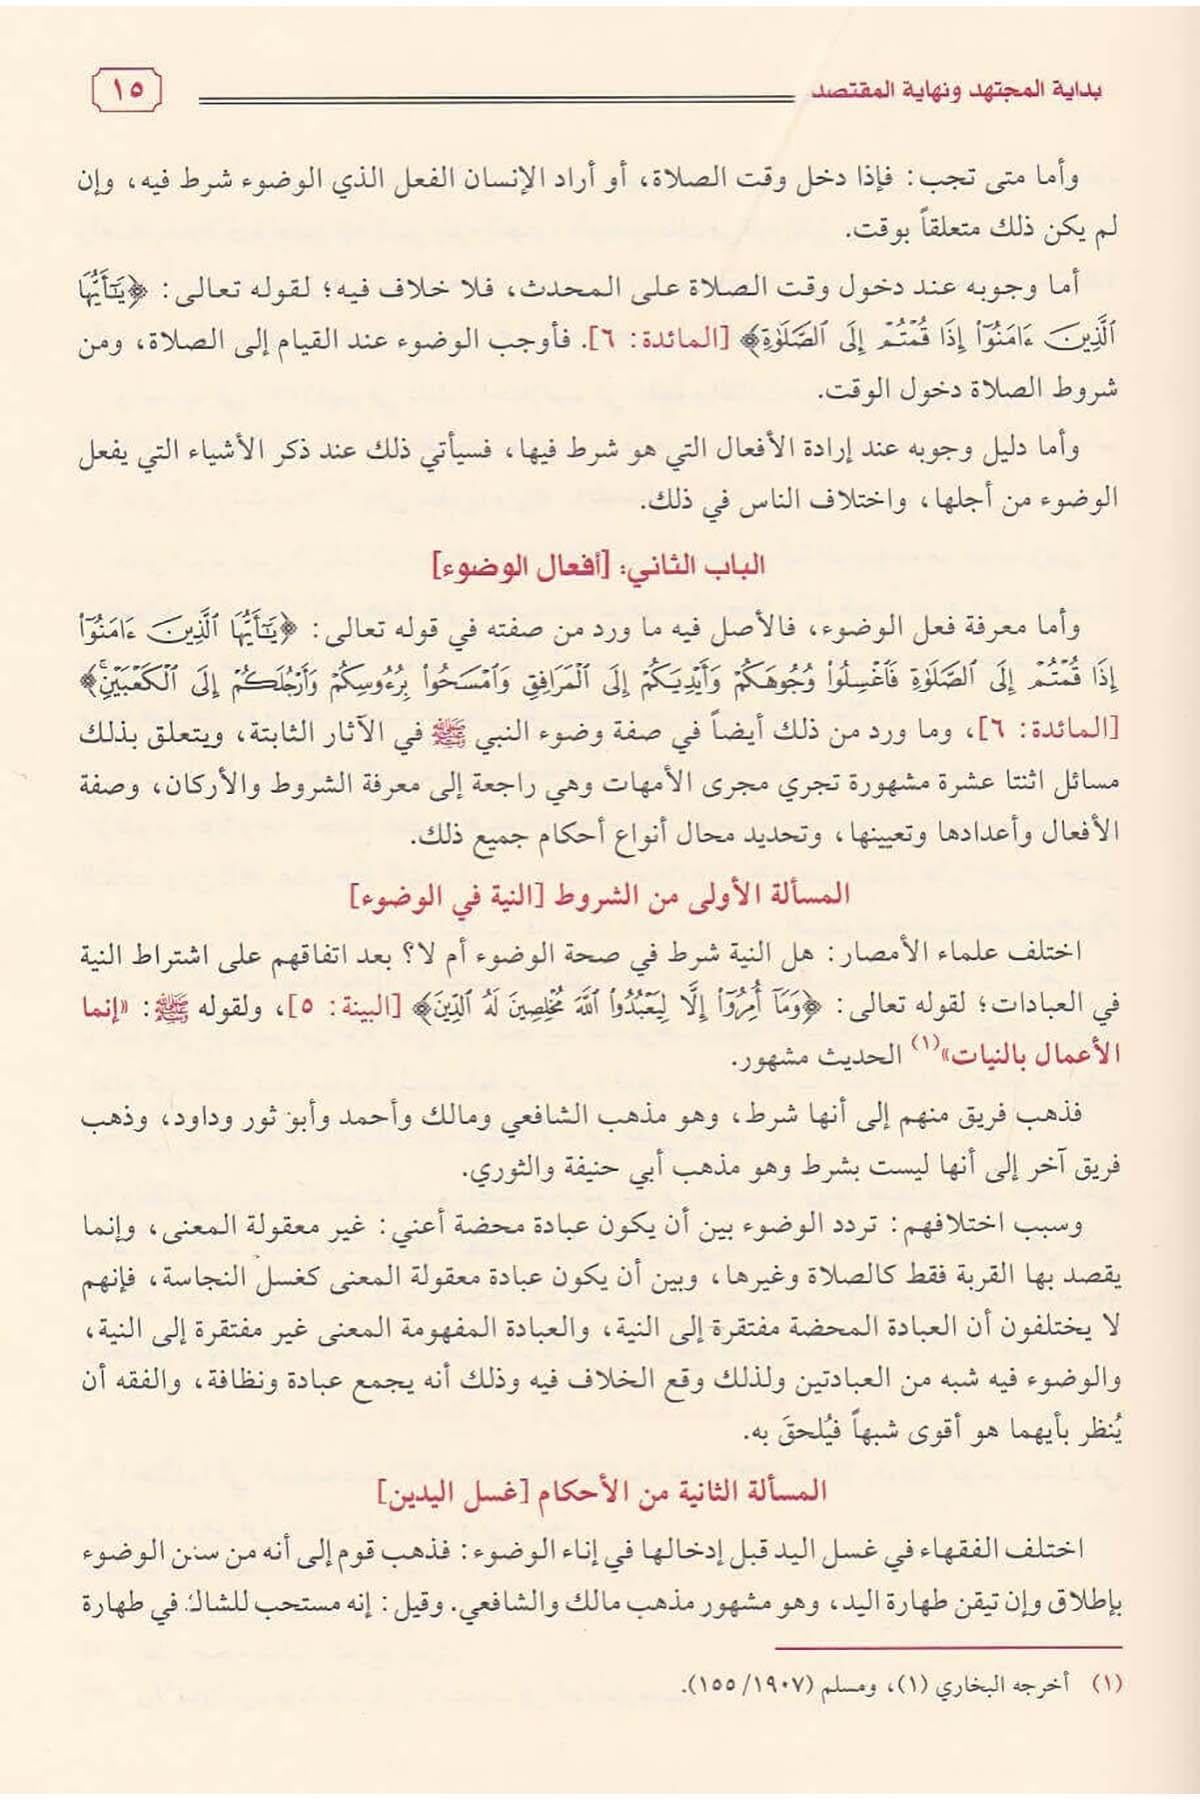 بداية المجتهد ونهاية المقتصد
١٥
وأما متى تجب: فإذا دخل وقت الصلاة، أو أراد الإنسان الفعل الذي الوضوء شرط فيه، وإن
لم يكن ذلك متعلقاً بوقت.
أما وجوبه عند دخول وقت الصلاة على المحدث، فلا خلاف فيه؛ لقوله تعالى: ﴿يَٰٓأَيُّهَا
ٱلَّذِينَ ءَامَنُوٓا۟ إِذَا قُمْتُمْ إِلَى ٱلصَّلَوٰةِ﴾ [المائدة: ٦]. فأوجب الوضوء عند القيام إلى الصلاة، ومن
شروط الصلاة دخول الوقت.
وأما دليل وجوبه عند إرادة الأفعال التي هو شرط فيها، فسيأتي ذلك عند ذكر الأشياء التي يفعل
الوضوء من أجلها، واختلاف الناس في ذلك.
الباب الثاني: [أفعال الوضوء]
وأما معرفة فعل الوضوء، فالأصل فيه ما ورد من صفته في قوله تعالى: ﴿يَٰٓأَيُّهَا ٱلَّذِينَ ءَامَنُوٓا۟
إِذَا قُمْتُمْ إِلَى ٱلصَّلَوٰةِ فَٱغْسِلُوا۟ وُجُوهَكُمْ وَأَيْدِيَكُمْ إِلَى ٱلْمَرَافِقِ وَٱمْسَحُوا۟ بِرُءُوسِكُمْ وَأَرْجُلَكُمْ إِلَى ٱلْكَعْبَيْنِ﴾
[المائدة: ٦]، وما ورد من ذلك أيضاً في صفة وضوء النبي ﷺ في الآثار الثابتة، ويتعلق بذلك
مسائل اثنتا عشرة مشهورة تجري مجرى الأمهات وهي راجعة إلى معرفة الشروط والأركان، وصفة
الأفعال وأعدادها وتعيينها، وتحديد محال أنواع أحكام جميع ذلك.
المسألة الأولى من الشروط [النية في الوضوء]
اختلف علماء الأمصار: هل النية شرط في صحة الوضوء أم لا؟ بعد اتفاقهم على اشتراط النية
في العبادات؛ لقوله تعالى: ﴿وَمَآ أُمِرُوٓا۟ إِلَّا لِيَعْبُدُوا۟ ٱللَّهَ مُخْلِصِينَ لَهُ ٱلدِّينَ﴾ [البينة: ٥]، ولقوله ﷺ: «إنما
الأعمال بالنيات»(١) الحديث مشهور.
فذهب فريق منهم إلى أنها شرط، وهو مذهب الشافعي ومالك وأحمد وأبو ثور وداود، وذهب
فريق آخر إلى أنها ليست بشرط وهو مذهب أبي حنيفة والثوري.
وسبب اختلافهم: تردد الوضوء بين أن يكون عبادة محضة أعني: غير معقولة المعنى، وإنما
يقصد بها القربة فقط كالصلاة وغيرها، وبين أن يكون عبادة معقولة المعنى كغسل النجاسة، فإنهم
لا يختلفون أن العبادة المحضة مفتقرة إلى النية، والعبادة المفهومة المعنى غير مفتقرة إلى النية،
والوضوء فيه شبه من العبادتين ولذلك وقع الخلاف فيه وذلك أنه يجمع عبادة ونظافة، والفقه أن
يُنظر بأيهما هو أقوى شبهاً فيُلحقَ به.
المسألة الثانية من الأحكام [غسل اليدين]
اختلف الفقهاء في غسل اليد قبل إدخالها في إناء الوضوء: فذهب قوم إلى أنه من سنن الوضوء
بإطلاق وإن تيقن طهارة اليد، وهو مشهور مذهب مالك والشافعي. وقيل: إنه مستحب للشاك في طهارة
(١) أخرجه البخاري (١)، ومسلم (١٩٠٧/ ١٥٥).